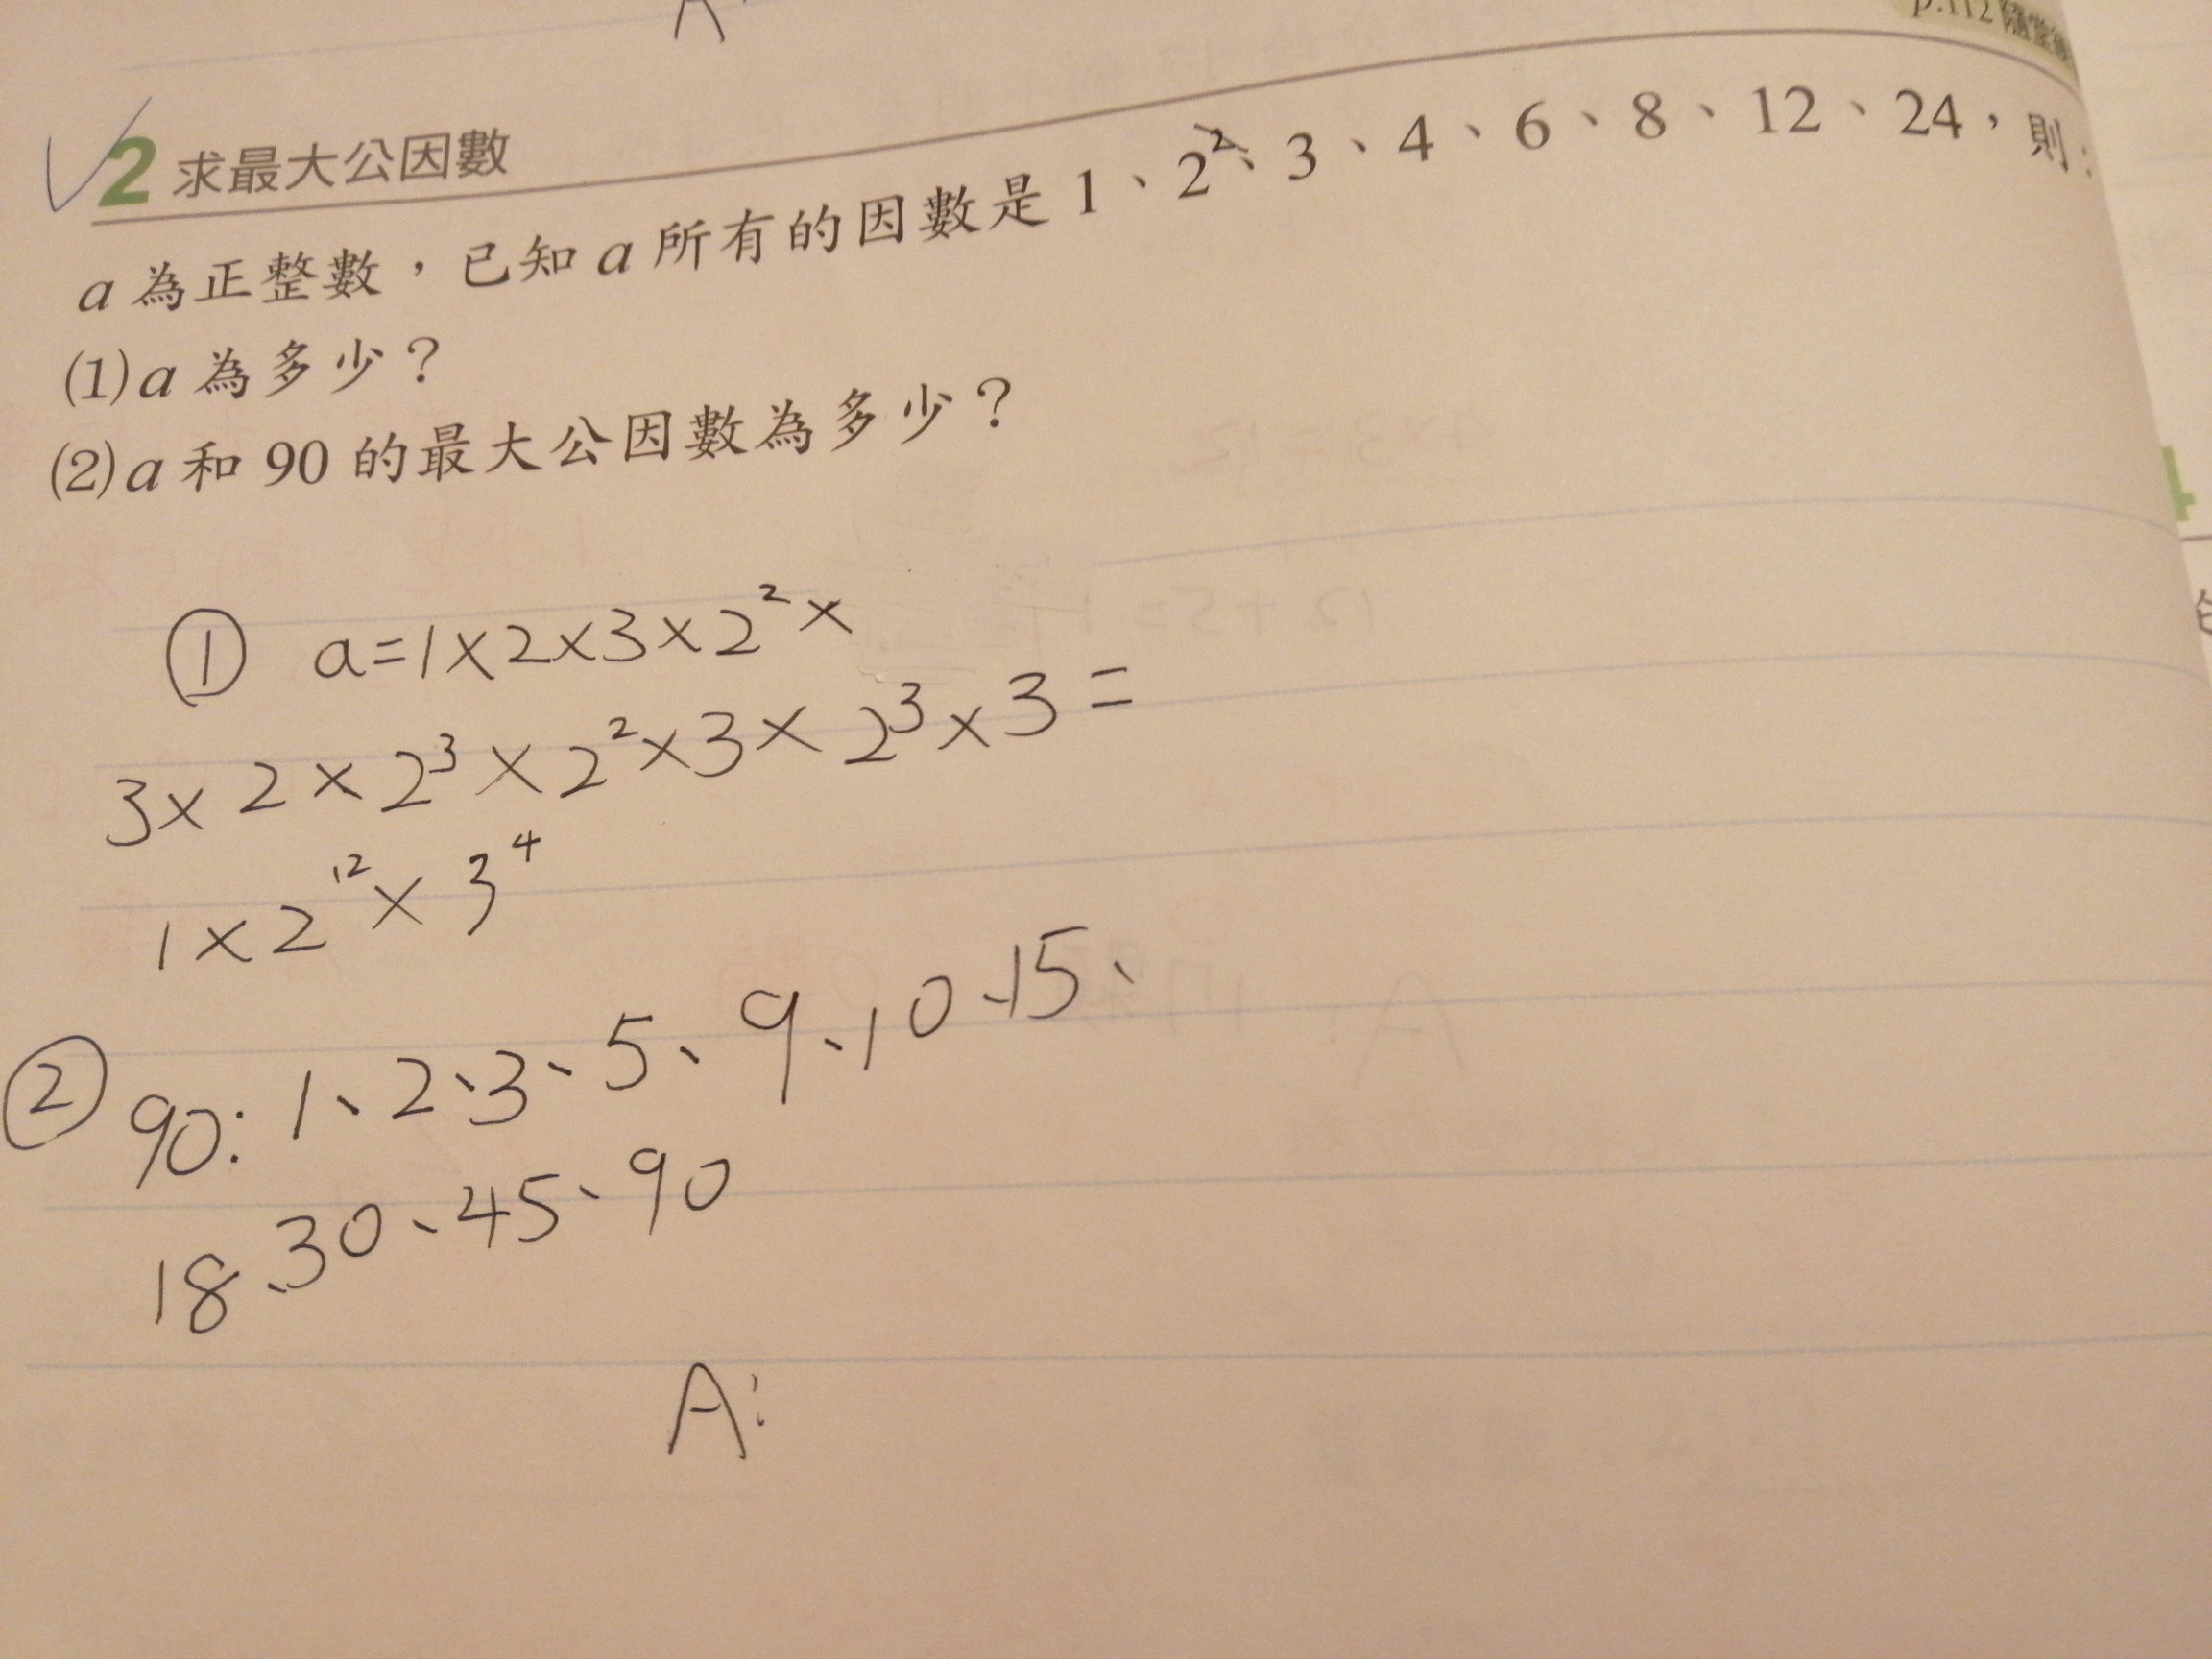 p.112 隨堂練
2 求最大公因數
a 為正整數，已知 a 所有的因數是 1、2²、3、4、6、8、12、24，則：
(1) a 為多少？
(2) a 和 90 的最大公因數為多少？
① a=1×2×3×2²×
3×2×2³×2²×3×2³×3=
1×2¹²×3⁴
② 90: 1、2、3、5、9、10、15、
18、30、45、90
A: